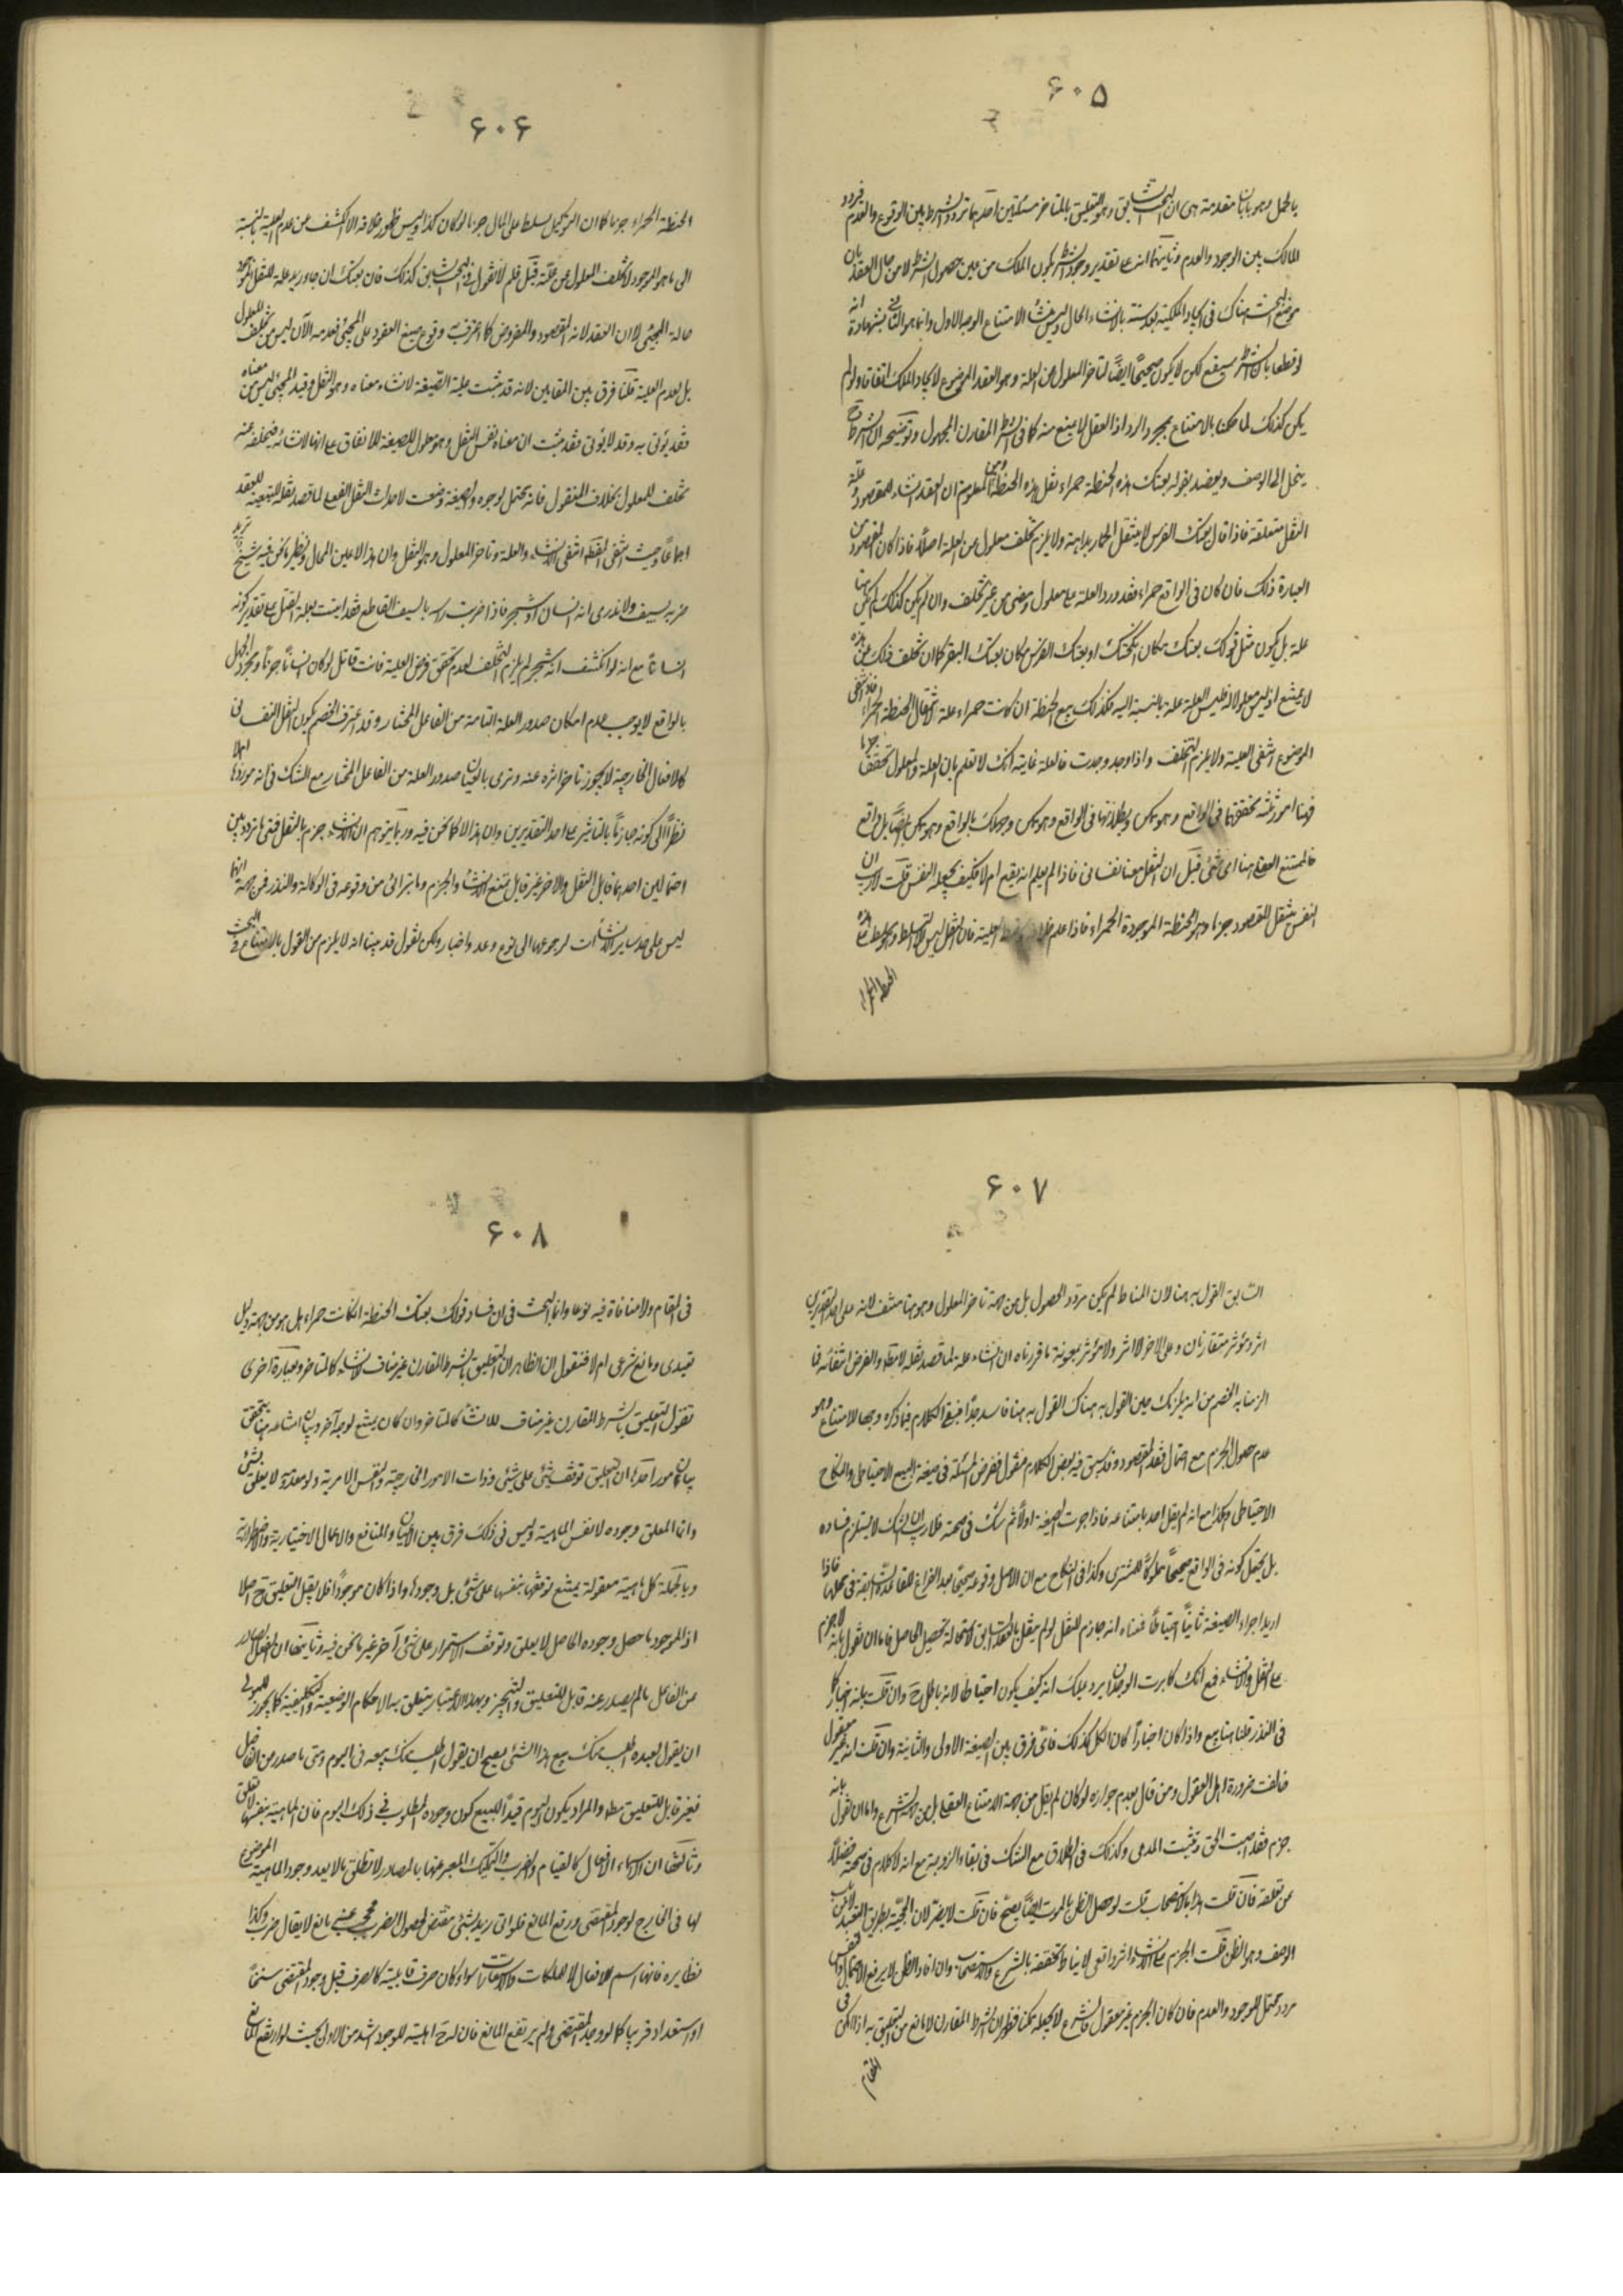 ۶۰۵
بالجمل وهو بيان مقدمة هى ان البحث السابق وهو التعليق بالمتاخر مسئلتين احدهما تردد الشرط بين الوقوع والعدم فيردد
المالك بين الوجود والعدم وثانيهما انه على تقدير وجود الشرط يكون الملك من حين حصول الشرط لا من حال العقد
موضع البحث هناك فى ايجاد الملكية بعد سنة بالانشاء الحال وليس منشأ الامتناع الوجه الاول وانما هو الثانى بشهادة انه
لو قطعنا بان الشرط سيقع لكن لا يكون صحيحًا ايضًا لتاخر المعلول عن العلة وهو العقد الموضوع لايجاد الملك اتفاقا ولو لم
يكن كذلك لما حكمنا بالامتناع بمجرد التردد اذ العقل لا يمنع منه كما فى الشرط المقارن المجهول وتوضيحه ان الشرط ح
ينحل الى الوصف ويقصد بقوله بعتك هذه الحنطة حمراء نقل هذه الحنطة ومن المعلوم ان العقد انشاء للمقصود وعلة
النقل متعلقة فاذا قال بعتك الفرس لا ينتقل الحمار بداهة ولا يلزم تخلف معلول عن العلة اصلًا فاذا كان المقصود من
العبارة ذلك فان كان فى الواقع حمراء فقد ورد العلة على معلول ومضى من غير تخلف وان لم يكن كذلك لم يكن هنا
علة بل يكون مثل قولك بعتك مكان انكحتك او بعتك الفرس مكان بعتك البقر كما ان تخلف ذلك عن هذه
لا يمتنع اذ ليس معلولا له فليس العلة علة بالنسبة اليه فكذلك بيع الحنطة ان كانت حمراء علة لانتقال الحنطة الحمراء فاذا انتفى
الموضوع انتفى العلية ولا يلزم التخلف واذا وجد وجدت فالعلة غايته انك لا تعلم بان العلة والمعلول تحققا جزما
فهنا امور ثلثة تحققهما فى الواقع وهو ممكن وبطلانهما فى الواقع وهو ممكن وجهلك بالواقع وهو ممكن ايضًا بل واقع
فالممتنع العقلى هنا اى شئ قيل ان النقل معنا نفسانى فاذا لم يعلم انه يقع ام لا فكيف يجعله النفس قلت لا ريب ان
النفس ينقل المقصود جزما وهو الحنطة الموجودة الحمراء فاذا علم العلية فان النقل ليس الا التسليط وهو تسليط على هذه
الحنطة الحمراء
۶۰۶
الحنطة الحمراء جزما كما ان التوكيل تسليط على المال جزما لو كان كذا وليس ظهور خلافه الا كشف عن عدم العلية بالنسبة
الى ما هو الموجود لا تخلف المعلول عن علته قيل فلم لا تقول فى البحث السابق كذلك فان بعتك ان جاء زيد علة للنقل الموجود
حالة المجيئ لا الان العقد لانه المقصود والمفروض كما اعترفت وقوع صيغ العقود على المجيئ فعدمه الآن ليس من تخلف المعلول
بل لعدم العلية قلنا فرق بين المقامين لانه قد ثبت علية الصيغة لانشاء معناه وهو النقل وقيد المجيئ ليس من معناه
فقد يؤتى به وقد لا يؤتى فقد ثبت ان معناه نفس النقل وهو معلول للصيغة للاتفاق على انها لانشائه فتخلفه عنه
تخلف للمعلول بخلاف المنقول فانه يحتمل لوجوه والصيغة وضعت لاحداث النقل الفعلى لما قصد نقله للتبعية للعقد
اجماعًا وحيث انتفى القصد انتفى الانشاء والعلة وتاخر المعلول وهو النقل وان هذا الا عين المحال ونظير ما نحن فيه شبح نريد
ضربه بسيف ولا ندرى انه انسان او شجر فاذا ضربت راسه بالسيف القاطع فقد اتيت بعلة القتل على تقدير كونه
انسانًا مع انه لو انكشف انه شجر لم يلزم التخلف لعدم تحقق فرض العلية فانت قاتل لو كان انسانًا جزمًا ومجرد الجهل
بالواقع لا يوجب عدم امكان صدور العلة التامة من الفاعل المختار وقد اعترف الخصم بكون النقل النفسانى
كالافعال الخارجية لا يجوز تاخر اثره عنه ونرى بالعيان صدور العلة من الفاعل المختار مع الشك فى انه موردها ام لا
نظرًا الى كونه جازمًا بالتاثير على احد التقديرين وان هذا الا كما نحن فيه وربما يتوهم ان الانشاء جزم بالنقل فمتى ما تردد بين
احتمالين احدهما قابل النقل والاخر غير قابل يمتنع الانشاء والجزم وما يترائى من وقوعه فى الوكالة والنذر فمن جهة انها
ليس على حد ساير الانشاآت لرجوعها الى نوع وعد واخبار ولكن نقول قد بينا انه لا يلزم من القول بالامتناع فى البحث
۶۰۷
السابق القول به هنا لان المناط لم يكن تردد الحصول بل من جهة تاخر المعلول وهو هنا منتف لانه على احد التقديرين
اثر ومؤثر متقارنان وعلى الاخر لا اثر ولا مؤثر بمعونة ما قررناه ان الانشاء علة لما قصد نقله لا مطلقا والفرض انتفائه فما
الزمنا به الخصم من انه يلزمك حين القول به هناك القول به هنا فاسد جدًا فبقى الكلام فيما ذكره وجها للامتناع وهو
عدم حصول الجزم مع احتمال فقد المقصود وقد سبق فيه بعض الكلام فنقول فلنفرض المسئلة فى صيغة البيع الاحتياطى والنكاح
الاحتياطى وهكذا مع انه لم يقل احد بامتناعه فاذا اجريت الصيغة اولًا ثم شك فى صحته فلا ريب ان الشك لا يستلزم فساده
بل يحتمل كونه فى الواقع صحيحًا مملوكًا للمشترى وكذا فى النكاح مع ان الاصل وقوعه صحيحًا بعد الفراغ للقاعدة السابقة فى محلها فاذا
اريد اجراء الصيغة ثانيًا احتياطًا فمعناه انه جازم للنقل لو لم ينقل بالعقد السابق لاستحالة تحصيل الحاصل فاما ان تقول بانه لا جزم
على النقل والانشاء فمع انك كابرت الوجدان يرد عليك انه كيف يكون احتياطا لانه باطل ح وان قلت بانه اخبار كما
فى النذر قلنا هنا بيع واذا كان اخبارًا كان الكل كذلك فاىّ فرق بين الصيغة الاولى والثانية وان قلت انه غير معقول
خالفت ضرورة اهل العقول ومن قال بعدم جوازه لو كان لم يقل من جهة الامتناع العقلى بل من جهة الشرع واما ان تقول بانه
جزم فقد اصبت الحق وثبت المدعى وكذلك فى الطلاق مع الشك فى بقاء الزوجية مع انه لا كلام فى صحته فضلًا
عن تعلقه فان قلت هذا بالاستصحاب قلت لو حصل الظن بالموت ايضًا يصح فان قلت لا يضر لان الحجية بطريق التعبد لا من باب
الوصف وهو الظن قلت الجزم على الانشاء امر واقعى لا يناط تحققه بالشرع والاستصحاب وان افاد الظن لا يرفع الاحتمال والنفس
مردد محتمل للوجود والعدم فان كان الجزم غير معقول فالشرع لا يجعله ممكنا فظهر ان الشرط المقارن لا مانع من التعليق به اذ الكلام فى
المقام
۶۰۸
فى المقام ولا منافاة فيه نوعا وانما البحث فى ان فساد قولك بعتك الحنطة انكانت حمراء هل هو من جهة دليل
تعبدى ومانع شرعى ام لا فنقول ان الظاهر ان التعليق بالشرط المقارن غير مناف للانشاء كالمتاخر وبعبارة اخرى
نقول التعليق بالشرط المقارن غير مناف للانشاء كالمتاخر وان كان يمتنع لوجه آخر وبيان امتناعه هنا يتحقق
ببيان امور احدها ان التعليق توقف شئ على شئ وذوات الامور الخارجية والنفس الامرية ولو معدومة لا يعلق بشئ
وانما المعلق وجوده لا نفس الماهية وليس فى ذلك فرق بين الاعيان والمنافع والاعمال الاختيارية والاضطرارية
وبالجملة كل ماهية معقولة يمتنع توقفها بنفسها على شئ بل وجودها واذا كان موجودًا فلا يقبل التعليق ح اصلا
اذ الموجود ما حصل وجوده الحاصل لا يعلق وتوقف الاستمرار على شئ آخر غير ما نحن فيه وثانيها ان الفعل الصادر
عن الفاعل ما لم يصدر عنه قابل للتعليق والتنجيز وبهذا الاعتبار يتعلق به الاحكام الوضعية والتكليفية كما يجوز للمولى
ان يقول لعبده اطلب منك بيع هذا الشئ يصح ان يقول اطلب منك بيعه فى اليوم ومتى ما صدر من الفاعل
فغير قابل للتعليق مطلقا والمراد بكون اليوم قيدًا للبيع كون وجوده المطلوب فى ذلك اليوم فان الماهية بنفسها لا تعلق
وثالثها ان اسماء الافعال كالقيام والضرب والتمليك المعبر عنها بالمصادر لا تطلق الا بعد وجود الماهية الموضوع
لها فى الخارج لوجود المقتضى ورفع المانع فلو اتى زيد بشئ مقتض لحصول الضرب فمنعه مانع لا يقال ضرب وكذا
نظايره فانها اسم للافعال لا للملكات والاستعدادات سواء كان صرف قابلية كالصرف قبل وجود المقتضى سنخًا
او استعداد قريبا كما لو وجد المقتضى ولم يرتفع المانع فان له ح اهلية للوجود اشد من الاولى بحيث لو ارتفع المانع